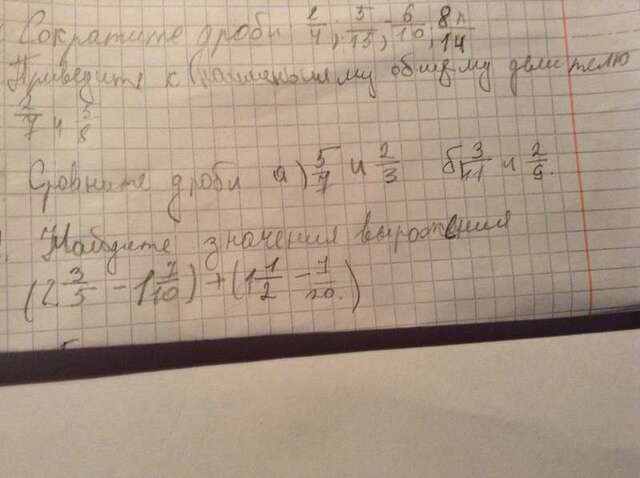 Сократите дроби 2/4; 5/15; 6/10; 8/14
Приведите к наименьшему общему делителю
2/7 и 5/8
Сравните дроби а) 5/7 и 2/3 б) 3/11 и 2/9.
Найдите значения выражения
(2 3/5 - 1 7/10) + (1 1/2 - 7/20.)